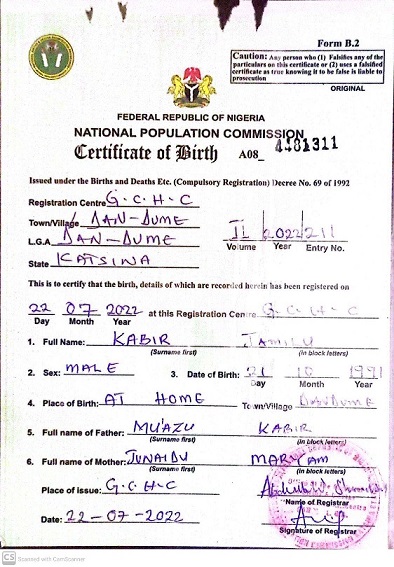 Form B.2
Caution: Any person who (1) Falsifies any of the
particulars on this certificate or (2) uses a falsified
certificate as true knowing it to be false is liable to
prosecution
ORIGINAL
FEDERAL REPUBLIC OF NIGERIA
NATIONAL POPULATION COMMISSION
Certificate of Birth A08_ 4481311
Issued under the Births and Deaths Etc. (Compulsory Registration) Decree No. 69 of 1992
Registration Centre G.C.H.C
Town/Village DAN-DUME
L.G.A DAN-DUME II 2022 211
Volume Year Entry No.
State KATSINA
This is to certify that the birth, details of which are recorded herein has been registered on
22 07 2022 at this Registration Centre G.C.H.C
Day Month Year
1. Full Name: KABIR JAMILU
(Surname first) (In block letters)
2. Sex: MALE 3. Date of Birth: 21 10 1991
Day Month Year
4. Place of Birth: AT HOME Town/Village
5 Full name of Father: MU'AZU KABIR
(Surname first) (In block letters)
6. Full name of Mother: JUNAIDU MARYAM
(Surname first) (In block letters)
Place of Issue: G.C.H.C
Name of Registrar
Date: 22-07-2022
Signature of Registrar
CS Scanned with CamScanner